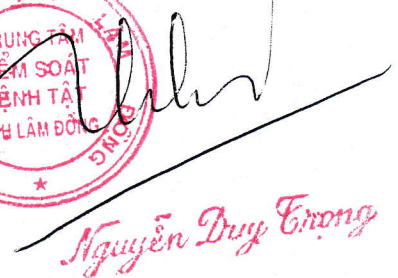 TRUNG TÂM
KIỂM SOÁT
BỆNH TẬT
TỈNH LÂM ĐỒNG
LÂM ĐỒNG
Nguyễn Duy Trọng